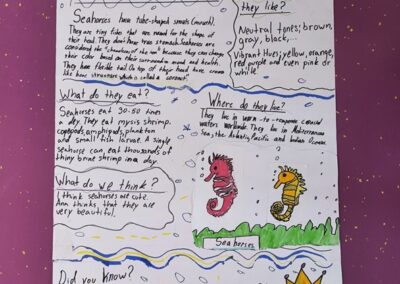 Seahorses have tube-shaped snouts (mouth).
They are tiny fishes that are named for the shape of
their head. They don't have true stomach. Seahorses are
considered the "chameleons of the sea" because they can change
their color based on their surrounding mood and health.
They have flexible tail. On top of their head have crown
like horn structure which is called a "coronet".
they like?
Neutral tones; brown,
gray, black,...
Vibrant Hues; yellow, orange,
red purple and even pink or
white!
What do they eat?
Seahorses eat 30-50 times
a day. They eat mysis shrimp,
copepods, amphipods, plankton
and small fish larvae. A single
seahorse can eat thousands of
thiny brine shrimp in a day.
Where do they live?
They live in warm-to-temperate coastal
waters worldwide. They live in Mediterranean
Sea, the Atlantic, Pacific and Indian Oceans.
What do we think?
I think seahorses are cute.
Ann thinks that they are
very beautiful.
Seahorses
Did you know?